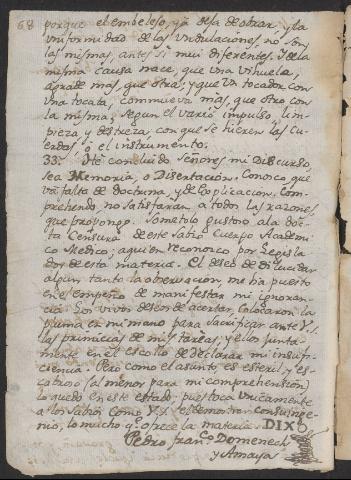 68 porque el embeleso, yà dexa de obrar, y la
uniformidad de las undulaciones, no son
las mismas, antes si mui diferentes. Y de la
misma causa nace, que una vihuela,
agrade mas, que otra; y que un tocador con
una tocata, commueva mas, que otro con
la misma, segun el vario impulso, lim-
pieza, y destreza, con que se hieren las cu-
erdas, ò el instrumento.
33. He concluido Señores mi Discurso,
sea Memoria, o Disertacion. Conosco, que
và falta de doctrina, y de explicacion. Com-
prehendo, no satisfaràn à todos las razones,
que propongo. Sometolo gustoso à la doc-
ta Censura de este Sabio Cuerpo Academi-
co Medico; aquien reconosco por Legisla
dor de esta materia. El deseo de dilucidar
algun tanto la observacion, me ha puesto
en el empeño de manifestar mi ignoran-
cia. Los vivos deseos de acertar, colocaron la
pluma en mi mano para sacrificar ante V.S.
las primicias de mis tareas, y ellos junta-
mente en el escollo de declarar mi insufi-
ciencia. Pero como el asunto, es esteril y es-
cabroso (al menos para mi comprehension)
lo quedo en este estado; pues toca unicamente
à los Sabios como V.S. el demostrar con su inge-
nio, lo mucho q. ofrece la materia. DIXI
Pedro Fran.co Domenech
y Amaya